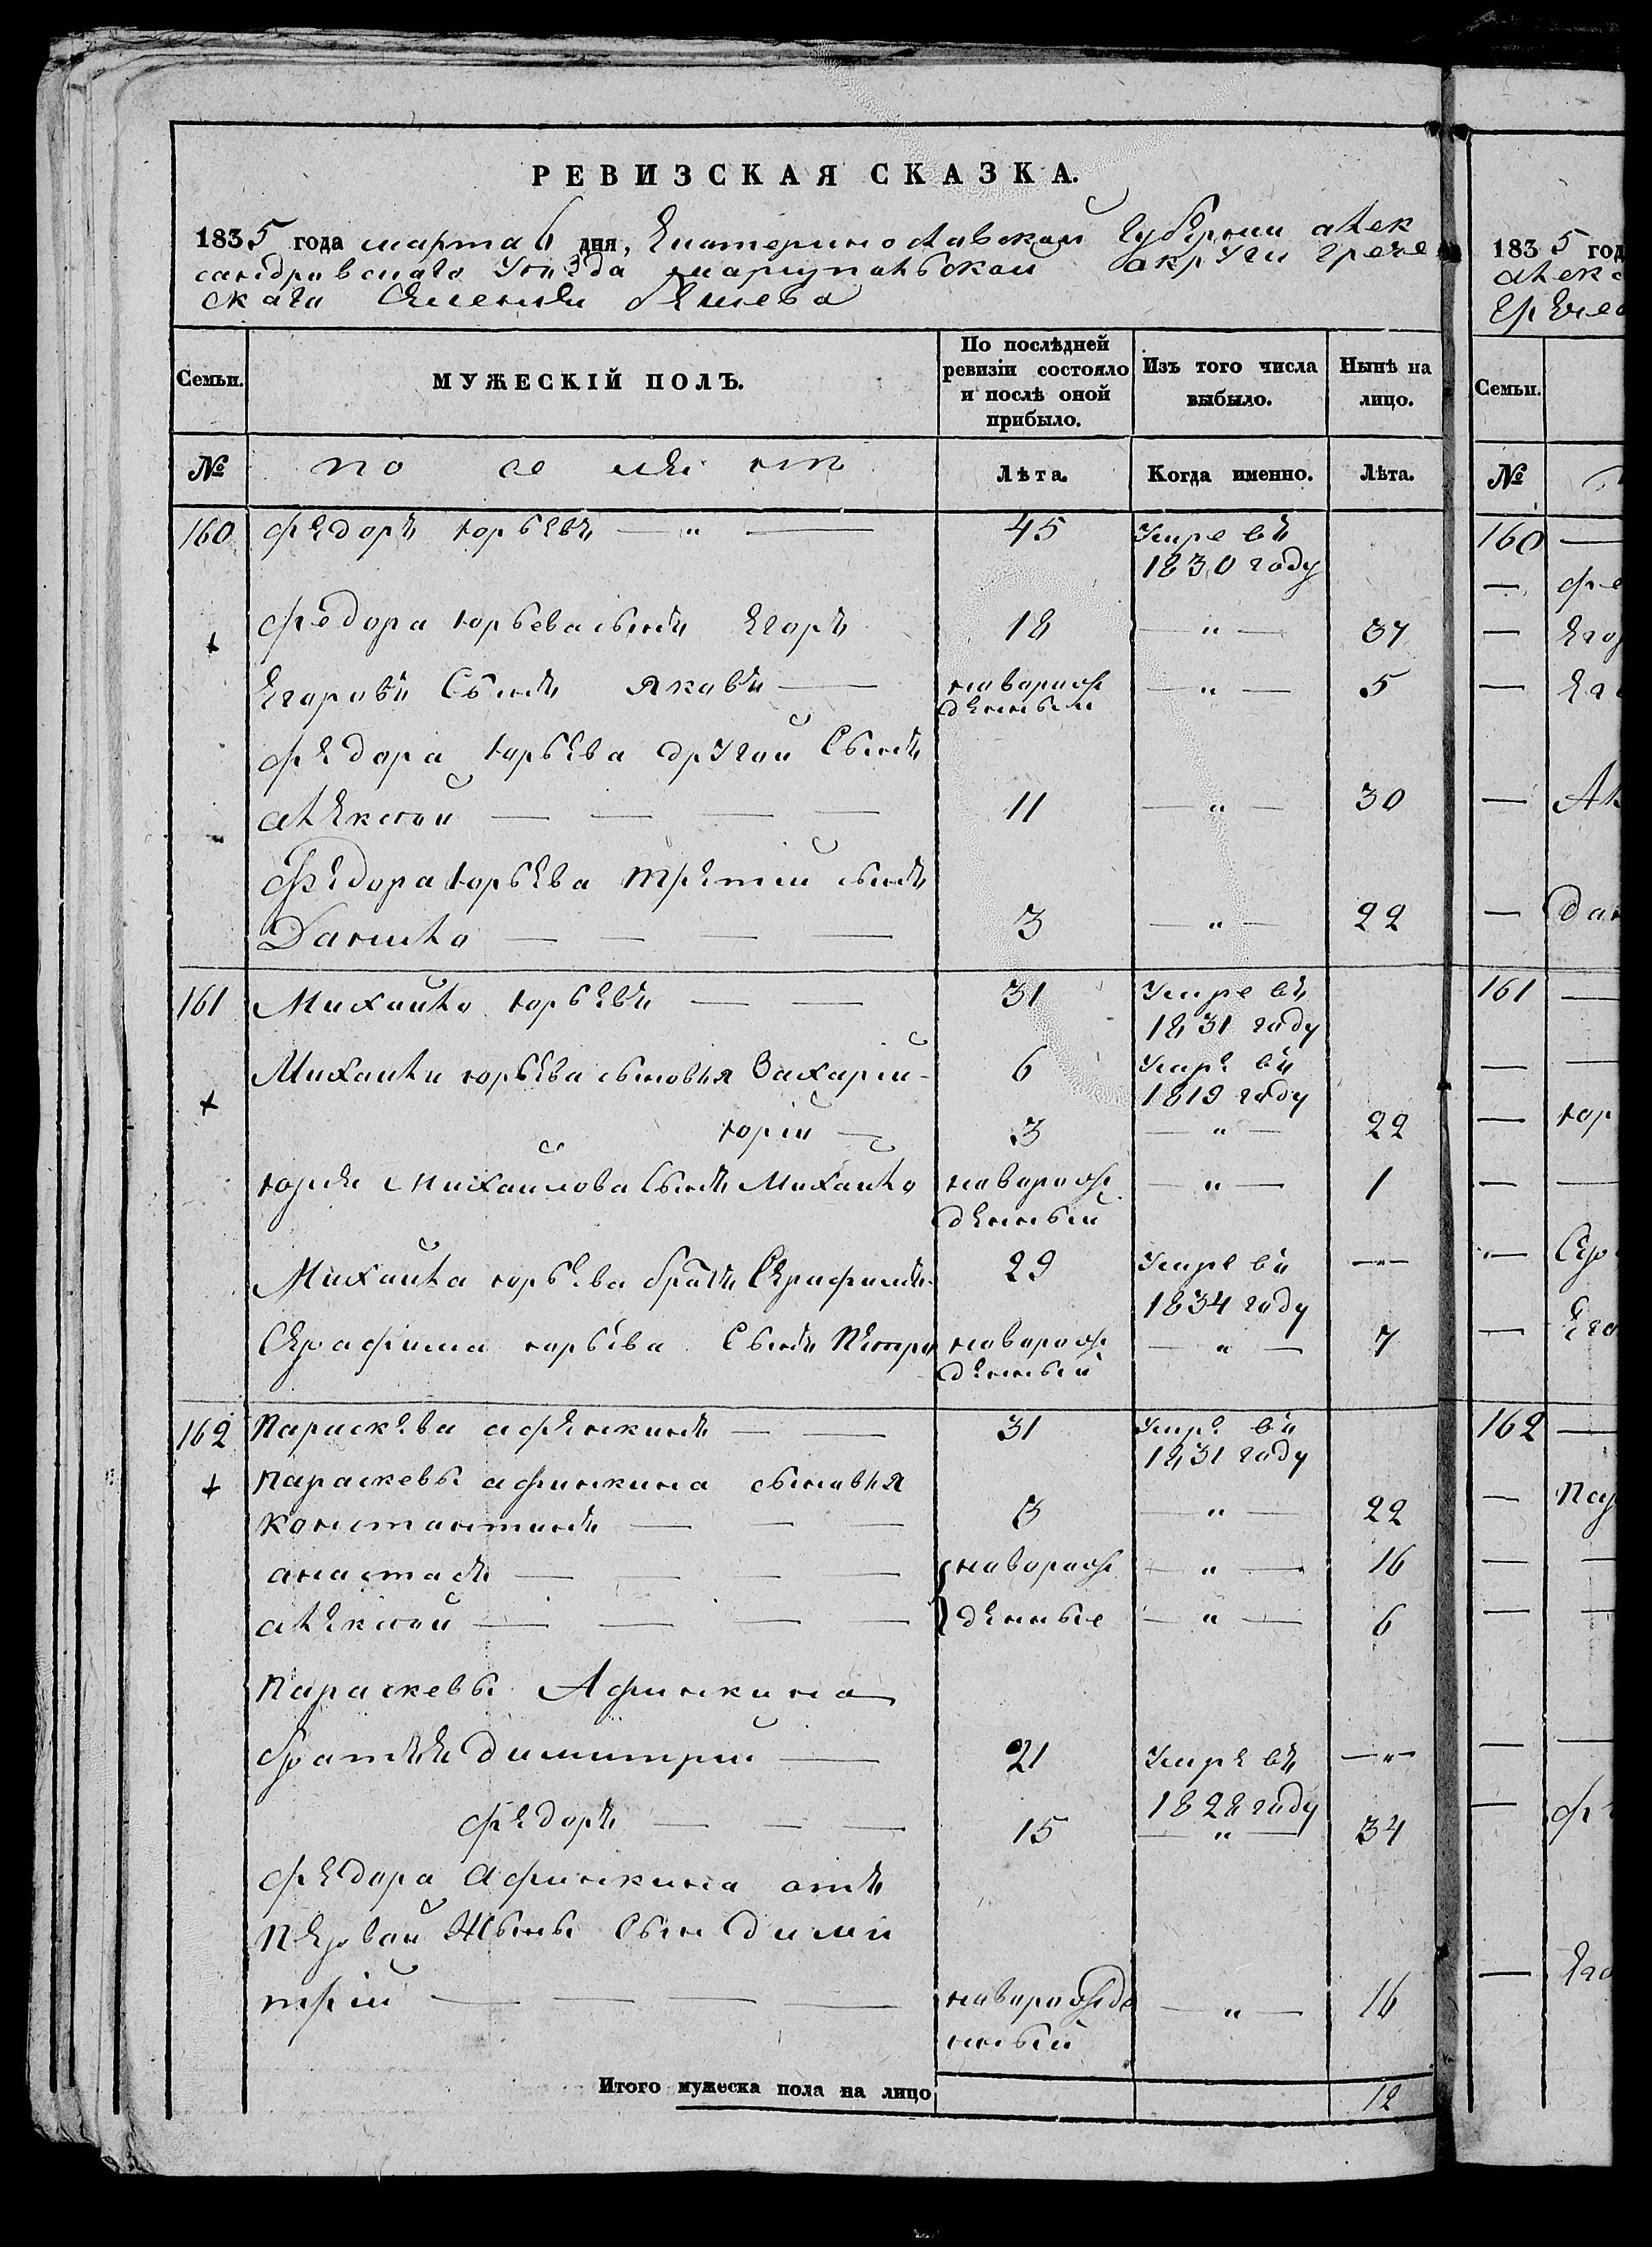 РЕВИЗСКАЯ СКАЗКА.
1835 года марта 6 дня, Екатеринославской Губернии алек
сандровскаго Уезда мариупольской округи грече
скаго Селения Бешева
Семьи.
МУЖЕСКІЙ ПОЛЪ.
По послѣдней ревизіи состояло и послѣ оной прибыло.
Изъ того числа выбыло.
Нынѣ на лицо.
№
Лѣта.
Когда именно.
Лѣта.
160 Федоръ юрьевъ — " — 45 Умре въ
1830 году
+ Федора юрьева сынъ Егоръ 18 — " — 37
Егоровъ Сынъ яковъ — наворож
денный — " — 5
федора юрьева другой Сынъ
алексей — — — — 11 — " — 30
Федора юрьева третий сынъ
Данило — — — — 3 — " — 22
161 Михайло юрьевъ — — 31 Умре въ
1831 году
+ Михайлы юрьева сыновья Захарий - 6 Умре въ
1819 году
юрий — 3 — " — 22
юрия Михайлова Сынъ Михайло наворож
денный — " — 1
Михайла юрьева братъ Серафимъ - 29 Умре въ — " —
1834 году
Серафима юрьева Сынъ Петръ наворож
денный — " — 7
162 Параскева афенкинъ — — 31 Умре въ
1831 году
+ Параскевы афинкина сыновья
Константинъ — — — 3 — " — 22
анастасъ — — — — наворож — " — 16
алексей — — — — денные — " — 6
Параскевы Афинкина
братья димитрий — 21 Умре въ — " —
1828 году
федоръ — — — 15 — " — 34
федора афинкина отъ
первой жены Сын дими
трий — — — — наворожде
нный — " — 16
Итого мужеска пола на лицо 12
1835 год
алекс
Гречес
Семьи.
№
160 —
— фе
— Его
— Его
— Ал
— Дан
161 —
— —
— юр
— —
— Сер
— Его
162 —
— Пар
— —
— —
— —
— ф
— Его